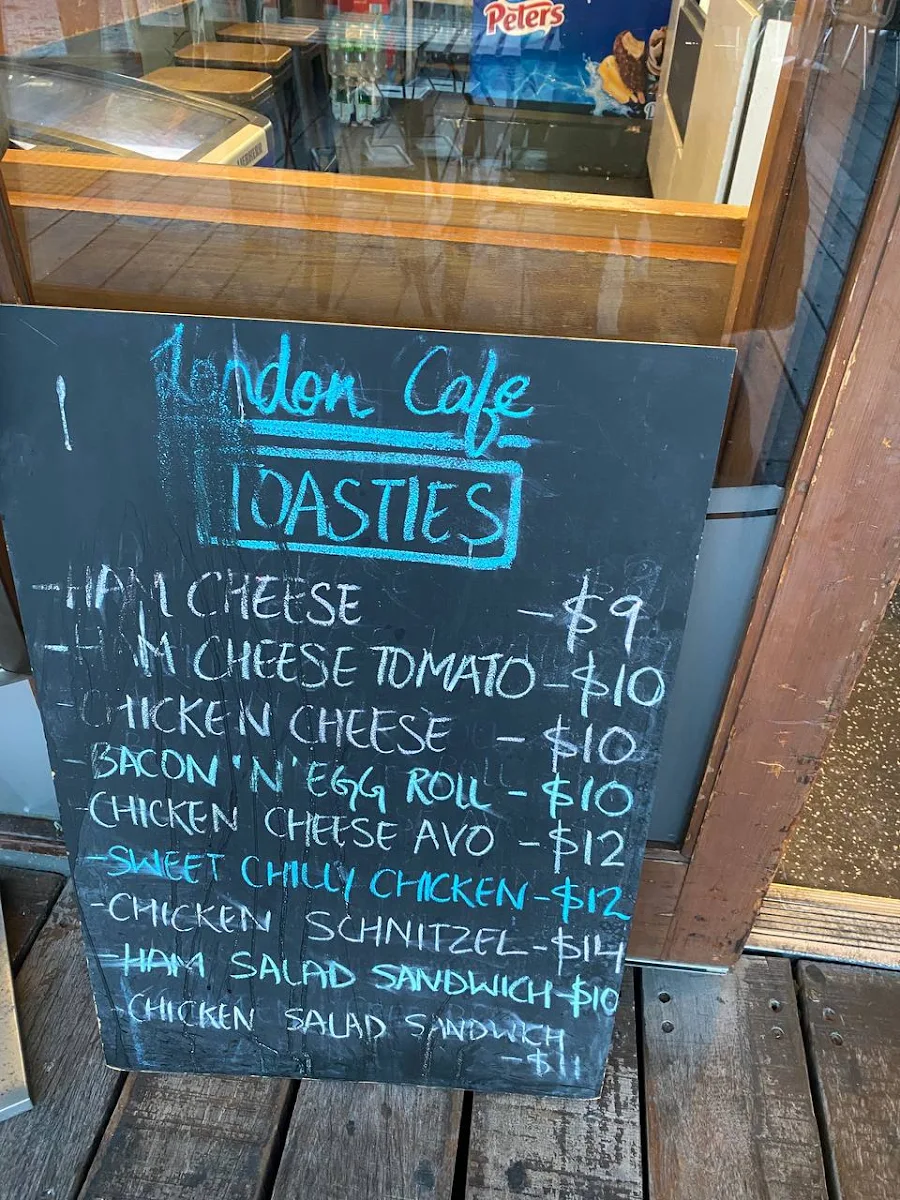 Peters
LIEBHERR
London Cafe
TOASTIES
-HAM CHEESE -$9
-HAM CHEESE TOMATO-$10
-CHICKEN CHEESE -$10
-BACON 'N' EGG ROLL -$10
-CHICKEN CHEESE AVO -$12
-SWEET CHILLY CHICKEN-$12
-CHICKEN SCHNITZEL-$14
-HAM SALAD SANDWICH-$10
-CHICKEN SALAD SANDWICH
-$11